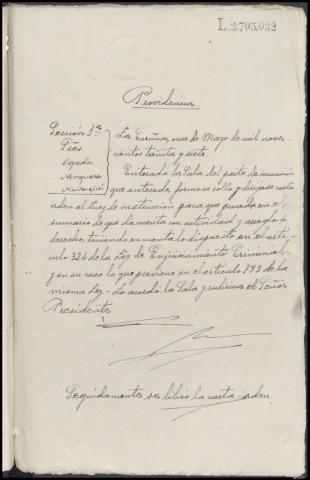 L.2.703.032
Providencia
Sección 1ª
Sres
Cepeda
Noguera
La Coruña, once de Mayo de mil nove-
cientos treinta y siete.
Enterada la Sala del parte de incoación
que antecede, fórmese rollo y diríjase carta
orden al Juez de instrucción para que proceda en el
sumario de que da cuenta con actividad y arreglo á
derecho, teniendo en cuenta lo dispuesto en el artí-
culo 324 de la Ley de Enjuiciamiento Criminal,
y en su caso lo que previene en el artículo 793 de la
misma Ley - Lo acordó la Sala y rubrica el Señor
Presidente
Seguidamente se libró la carta-orden.